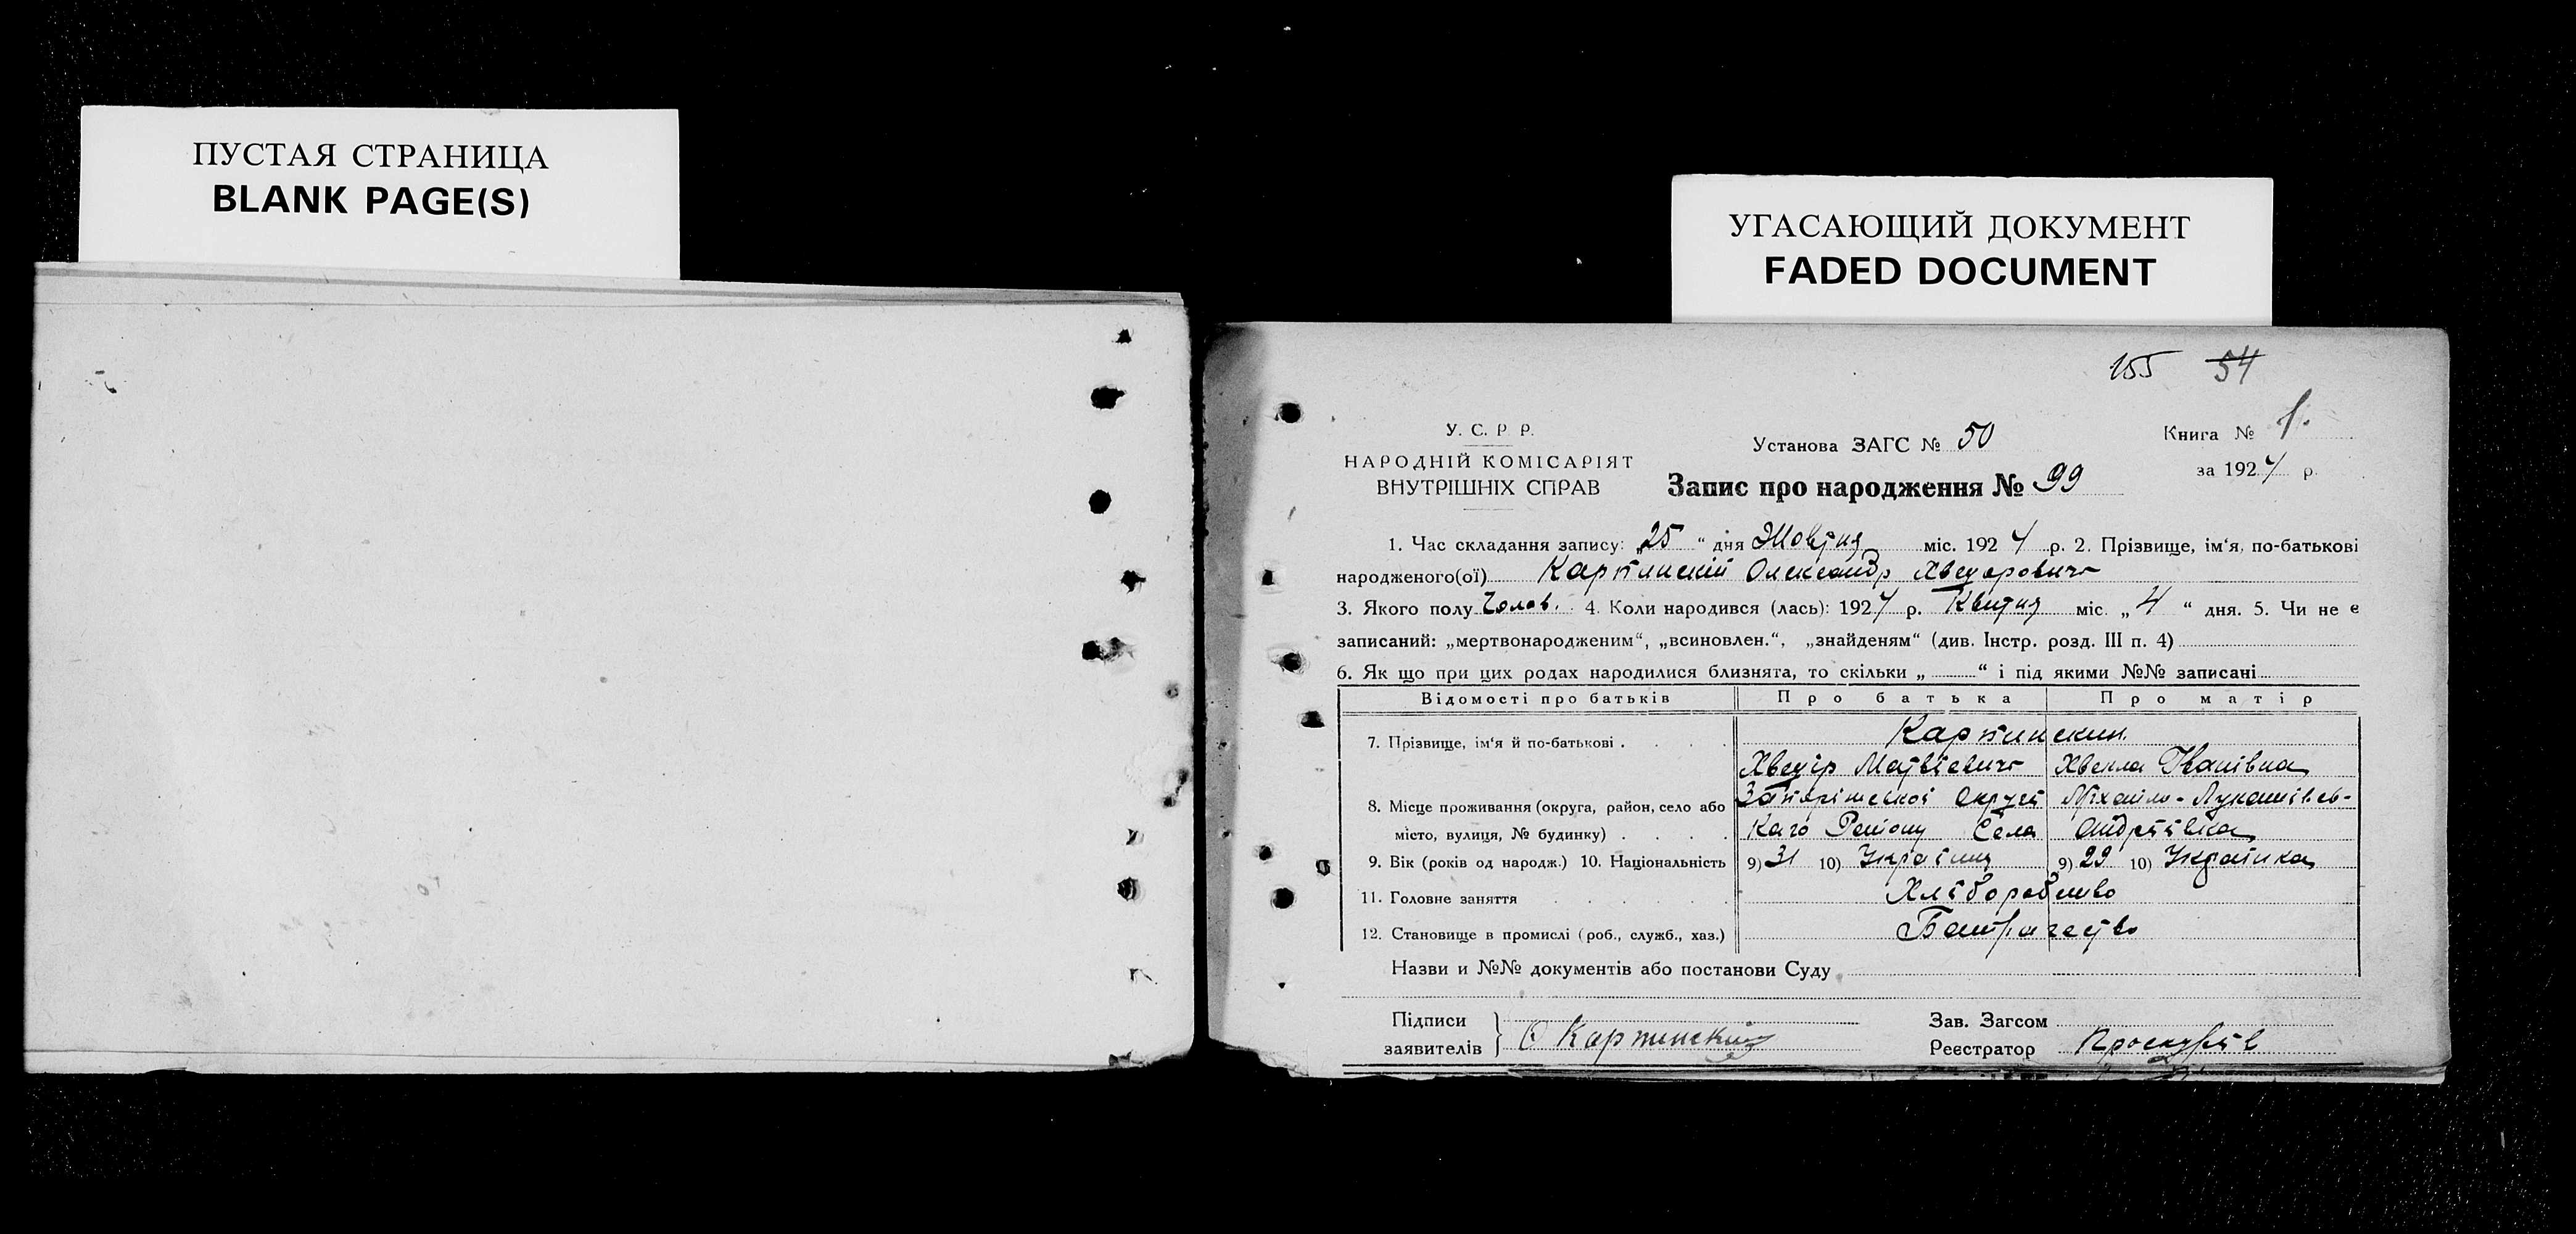 ПУСТАЯ СТРАНИЦА
BLANK PAGE(S)
УГАСАЮЩИЙ ДОКУМЕНТ
FADED DOCUMENT
155 54
У. С. Р Р.
НАРОДНІЙ КОМІСАРІЯТ
ВНУТРІШНІХ СПРАВ
Установа ЗАГС № 50
Запис про народження № 99
Книга № 1.
за 1924 р.
1. Час складання запису: „25“ дня Жовтня міс. 1924 р. 2. Прізвище, ім‘я, по-батькові
народженого(ої) Карпинский Олександр Хведорович
3. Якого полу Чолов. 4. Коли народився (лась): 1924 р. Квитня міс. „4“ дня. 5. Чи не є
записаний: „мертвонародженим“, „всиновлен.“, „знайденям“ (див. Інстр. розд. III п. 4)
6. Як що при цих родах народилися близнята, то скільки „ “ і під якими №№ записані
Відомості про батьків Про батька Про матір
7. Прізвище, ім‘я й по-батькові . Карпински
Хведір Матвієвич Хвекла Іванівна
8. Місце проживання (округа, район, село або Запоріжської Округи Міхайло-Лукашівсь-
місто, вулиця, № будинку) . каго Району Села Андріївка
9. Вік (років од народж.) 10. Національність 9) 31 10) Українц 9) 29 10) Українка
11. Головне заняття Хліборобство
12. Становище в промислі (роб., служб., хаз.) Батрачество
Назви и №№ документів або постанови Суду
Підписи
заявителів } Карпинский
Зав. Загсом
Реєстратор Проскурів